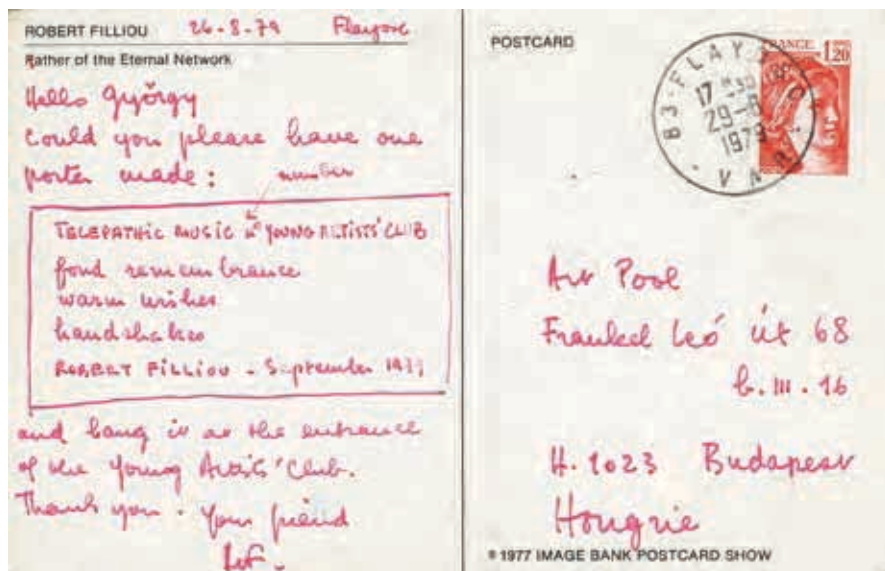 ROBERT FILLIOU 26-8-79 Flayosc
Father of the Eternal Network
Hello György
Could you please have one
poster made:
number
TELEPATHIC MUSIC n° YOUNG ARTISTS' CLUB
fond remembrance
warm wishes
handshakes
ROBERT FILLIOU - September 1979
and hang it at the entrance
of the Young Artists' Club.
Thank you. Your friend
POSTCARD
FRANCE 1,20
83-FLAYOSC
17
29-8
1979
VAR
Art Pool
Frankel Leó út 68
b. III. 16
H. 1023 Budapest
Hongrie
© 1977 IMAGE BANK POSTCARD SHOW